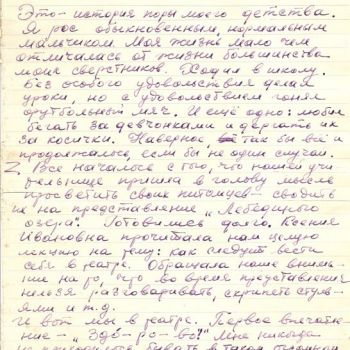 Это - история поры моего детства.
Я рос обыкновенным, нормальным
мальчиком. Моя жизнь мало чем
отличалась от жизни большинства
моих сверстников. Ходил в школу.
Без особого удовольствия делал
уроки, но с удовольствием гонял
футбольный мяч. И ещё одно: любил
бегать за девчонками и дёргать их
за косички. Наверное, так бы всё и
продолжалось, если бы не один случай.
2. Все началось с того, что нашей учи-
тельнице пришла в голову мысль
просветить своих питомцев - сводить
их на представление „Лебединого
озера". Готовились долго. Ксения
Ивановна прочитала нам целую
лекцию на тему: как следует вести
себя в театре. Обращала наше внима-
ние на то, что во время представления
нельзя разговаривать, скрипеть стуль-
ями и т.д.
И вот мы в театре. Первое впечатле-
ние - „Здо-ро-во!" Мне никогда
бывать в таком